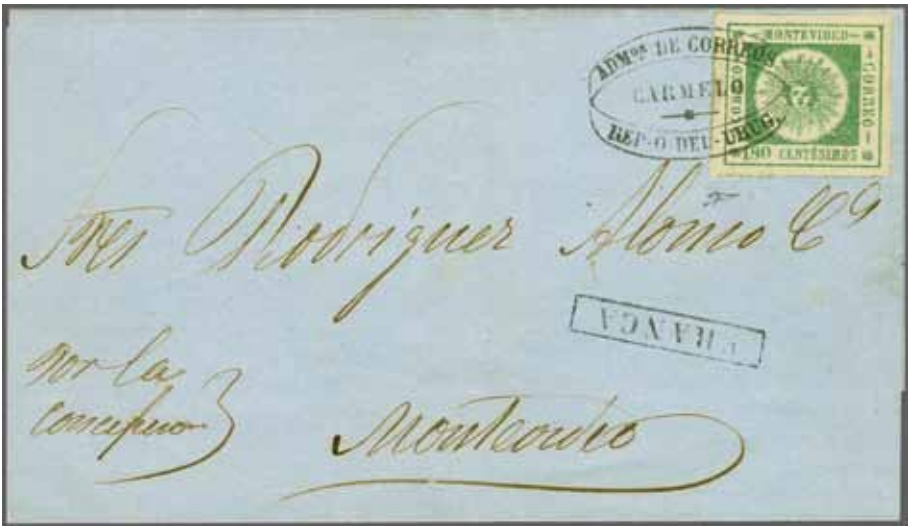 ADMon DE CORREOS
CARMELO
REP-O DEL-URUG.
MONTEVIDEO
CORREO
CORREO
180 CENTÉSIMOS
Sres Rodriguez Alonso Ca
FRANCA
por la
concepcion
Montevideo